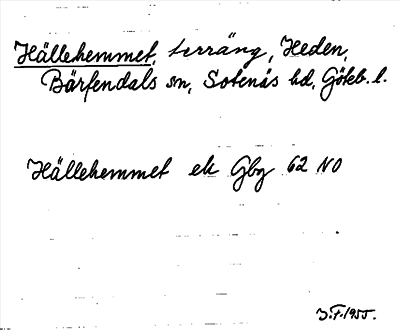 Hällehemmet, terräng, Heden,
Bärfendals sn, Sotenäs hd, Göteb. l.
Hällehemmet ek Gbg 62 NO
J.F. 1955.